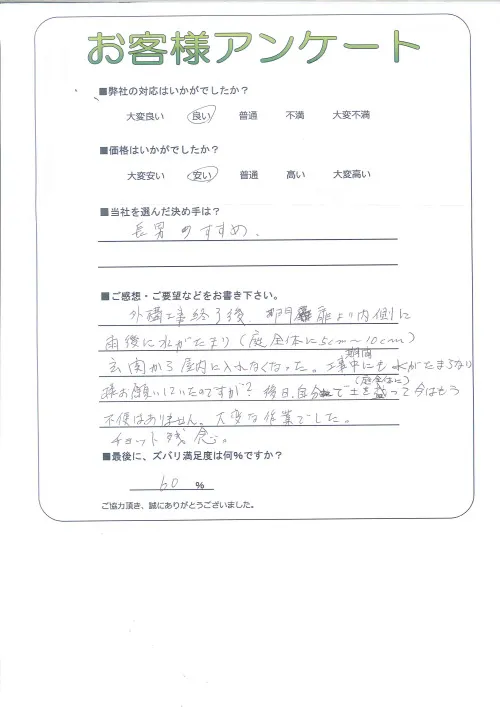 お客様アンケート
■弊社の対応はいかがでしたか？
大変良い 良い 普通 不満 大変不満
■価格はいかがでしたか？
大変安い 安い 普通 高い 大変高い
■当社を選んだ決め手は？
長男のすすめ、
■ご感想・ご要望などをお書き下さい。
外構工事終了後、門扉より内側に
雨後に水がたまり（庭全体に5cm〜10cm）
玄関から屋内に入れなくなった。工事期間中にも水がたまらない
様お願いしていたのですが？後日、自分で（庭全体に）土を盛って今はもう
不便はありません。大変な作業でした。
チョット残念。
■最後に、ズバリ満足度は何％ですか？
60 ％
ご協力頂き、誠にありがとうございました。